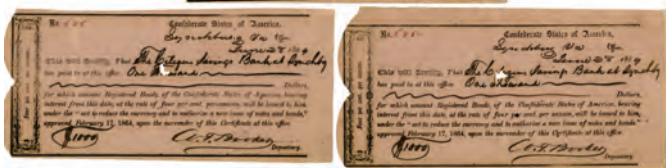 No. 585
Confederate States of America.
Lynchburg Va Office
June 28 1864
This will Certify, That The Citizens Savings Bank at Lynchbg
has paid in at this office One Thousand
Dollars,
for which amount Registered Bonds, of the Confederate States of America, bearing
interest from this date, at the rate of four per cent. per annum, will be issued to him
under the "act to reduce the currency and to authorize a new issue of notes and bonds,"
approved February 17, 1864, upon the surrender of this Certificate at this office.
$1000
Depositary.
Four per cent. per annum.
No. 585
Confederate States of America.
Lynchburg Va Office
June 28 1864
This will Certify, That The Citizens Savings Bank at Lynchbg
has paid in at this office One Thousand
Dollars,
for which amount Registered Bonds, of the Confederate States of America, bearing
interest from this date, at the rate of four per cent. per annum, will be issued to him,
under the "act to reduce the currency and to authorize a new issue of notes and bonds,"
approved February 17, 1864, upon the surrender of this Certificate at this office.
$1000
Depositary.